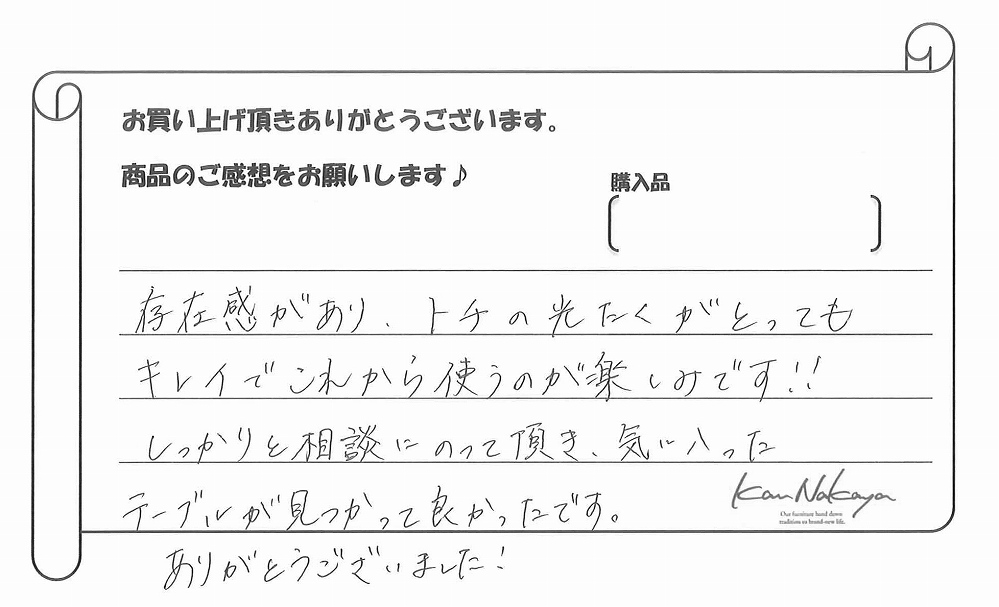 お買い上げ頂きありがとうございます。
商品のご感想をお願いします♪
購入品
存在感があり、トチの光たくがとっても
キレイでこれから使うのが楽しみです!!
しっかりと相談にのって頂き、気に入った
テーブルが見つかって良かったです。
ありがとうございました!
Kan Nakaya
Our furniture hand down
tradition to brand-new life.